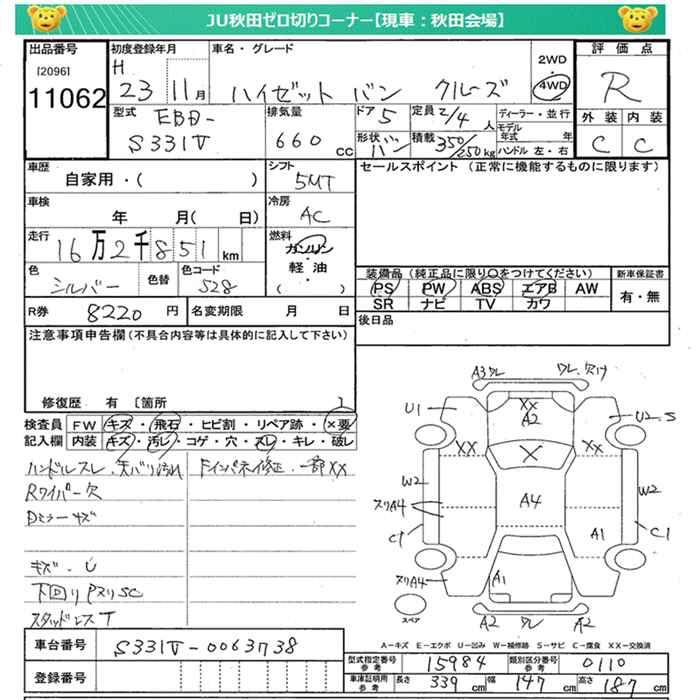 JU秋田ゼロ切りコーナー【現車：秋田会場】
出品番号
[2096]
11062
初度登録年月
H 23 11月
車名・グレード
ハイゼット バン クルーズ
2WD
4WD
評価点
R
型式
EBD-
S331V
排気量
660 CC
ドア 5
定員 2/4 人
ディーラー・並行
モデル年式 年
形状 バン
積載 350/250kg
ハンドル 左・右
外装 内装
C C
車歴
自家用・( )
シフト
5MT
セールスポイント (正常に機能するものに限ります)
車検
年 月( 日)
冷房
AC
走行
16万2千851km
燃料
ガソリン
軽・油
( )
色
シルバー
色替
色コード
S28
装備品(純正品に限り○をつけてください)
新車保証書
PS PW ABS エアB AW
有・無
SR ナビ TV カワ
R券 8220円
名変期限 月 日
後日品
注意事項申告欄(不具合内容等は具体的に記入して下さい)
修復歴 有 [箇所 ]
検査員 FW キズ・飛石・ヒビ割・リペア跡・×要
記入欄 内装 キズ・汚レ・コゲ・穴・スレ・キレ・破レ
ハンドルスレ.天バリ汚れ
Rワイパー欠
Dミラーキズ
キズ・U
下回りPヌリSC
スタッドレスT
一部XX
A3ワレ
ワレ.欠け
U1
XX
A2
U2.S
XX
X
XX
W2
A4
W2
スリA4
C1
A1
C1
スリA4
A1
スペア
A2 ワレ A2
A－キズ E－エクボ U－凹み W－補修跡 S－サビ C－腐食 XX－交換済
車台番号
S331V-0063738
型式指定番号 参考
15984
類別区分番号 参考
0110
登録番号
車庫証明用 参考
長さ 339cm
幅 147cm
高さ 187cm